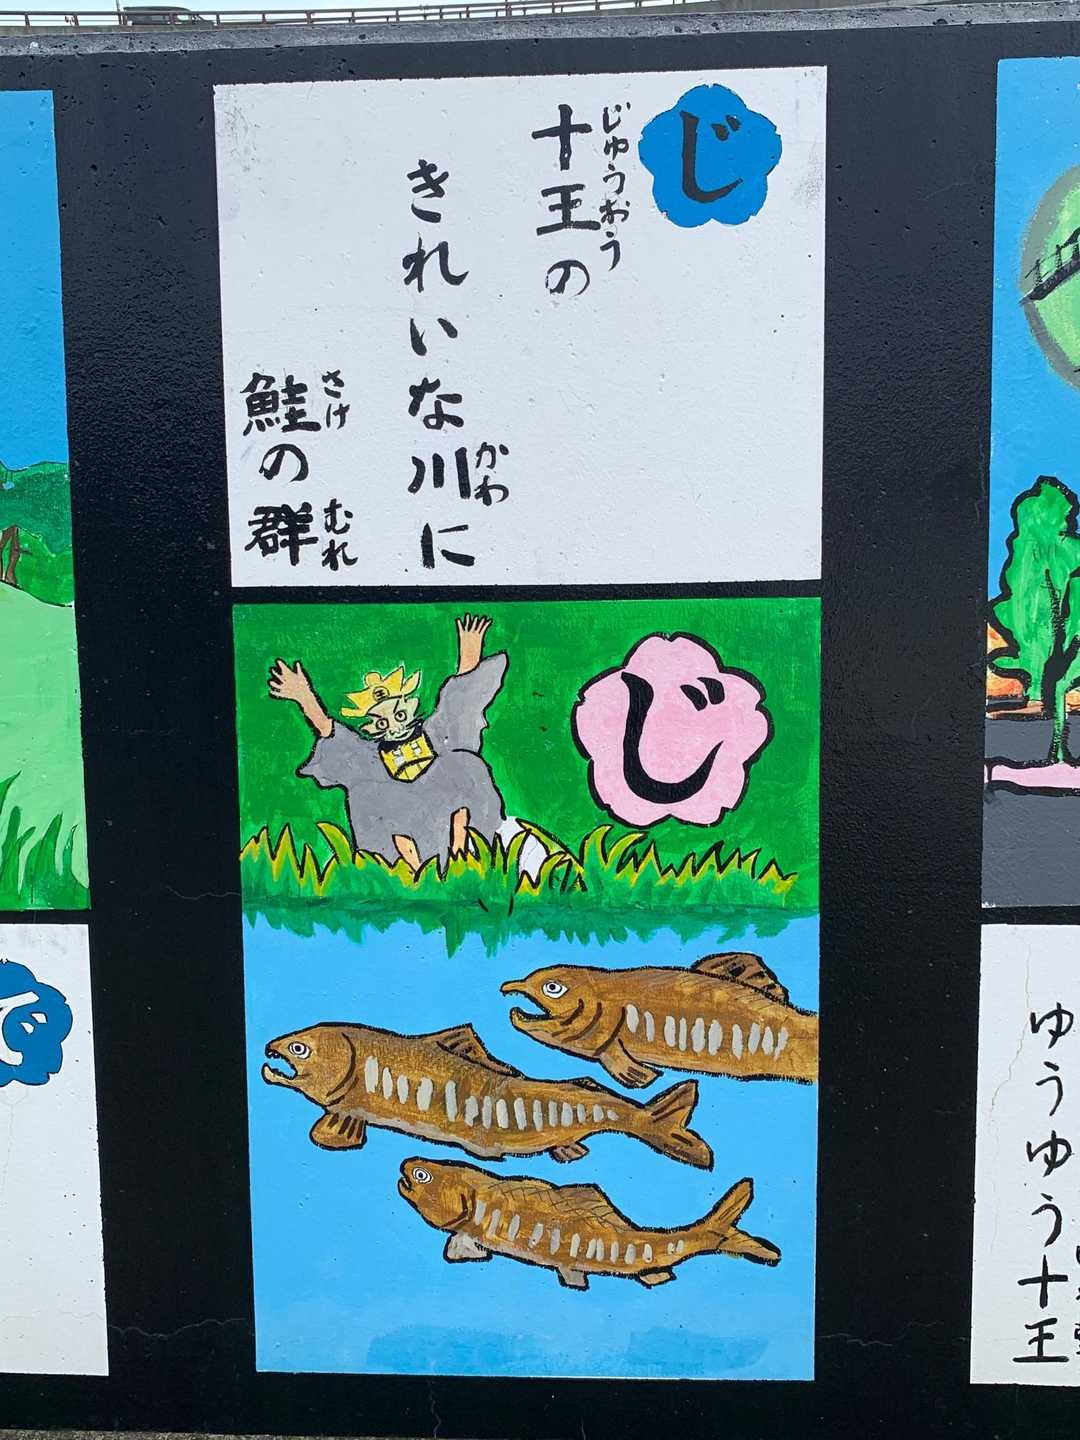 じ
じゅうおう
十王の
きれいな川に
かわ
さけ むれ
鮭の群
じ
王
で
ゆうゆう十王